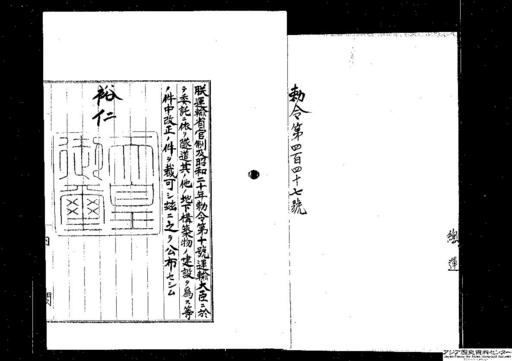 勅令第四百四十七號
朕運輸省官制及昭和二十年勅令第十號運輸大臣ニ於
テ委託ニ依リ隧道其ノ他ノ地下構築物ノ建設ヲ為ス等
ノ件中改正ノ件ヲ裁可シ玆ニ之ヲ公布セシム
裕仁
天皇御璽
内閣
アジア歴史資料センター